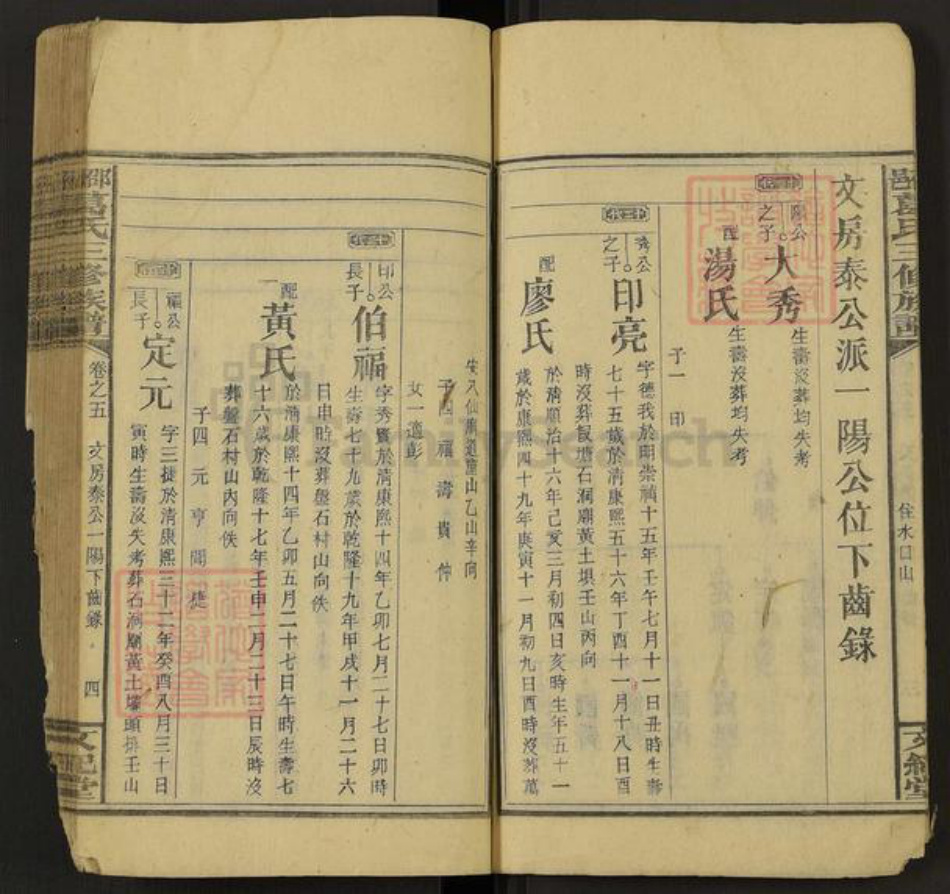 文房泰公派一陽公位下齒錄
陽公之子
大秀
生壽沒葬均失考
配
湯氏
生壽沒葬均失考
子一 印
十二代
秀公之子
印亮
字德我於明崇禎十五年壬午七月十一日丑時生壽
七十五歲於清康熙五十六年丁酉十一月十八日酉
時沒葬
石洞廟黃土垻壬山丙向
配
廖氏
於清順治十六年己亥三月初四日亥時生年五十一
歲於康熙四十九年庚寅十一月初九日酉時沒葬萬
安八仙
山乙山辛向
子四 福 壽 貴 仲
女一適彭
十三代
印公長子
伯福
字秀賓於清康熙十四年乙卯七月二十七日卯時
生壽七十九歲於乾隆十九年甲戌十一月二十六
日申時沒葬盤石村山向佚
配
黃氏
於清康熙十四年乙卯五月二十七日午時生壽七
十六歲於乾隆十七年壬申一月二十三日辰時沒
葬盤石村山內向佚
子四 元 亨 開 捷
福公長子
定元
字三捷於清康熙三十二年癸酉八月三十日
寅時生壽沒失考葬石洞廟黃土壋頭排壬山
氏三修族譜
卷之五
文房泰公一陽下齒錄
四
文紀堂
住水口山
文紀堂
FamilySearch